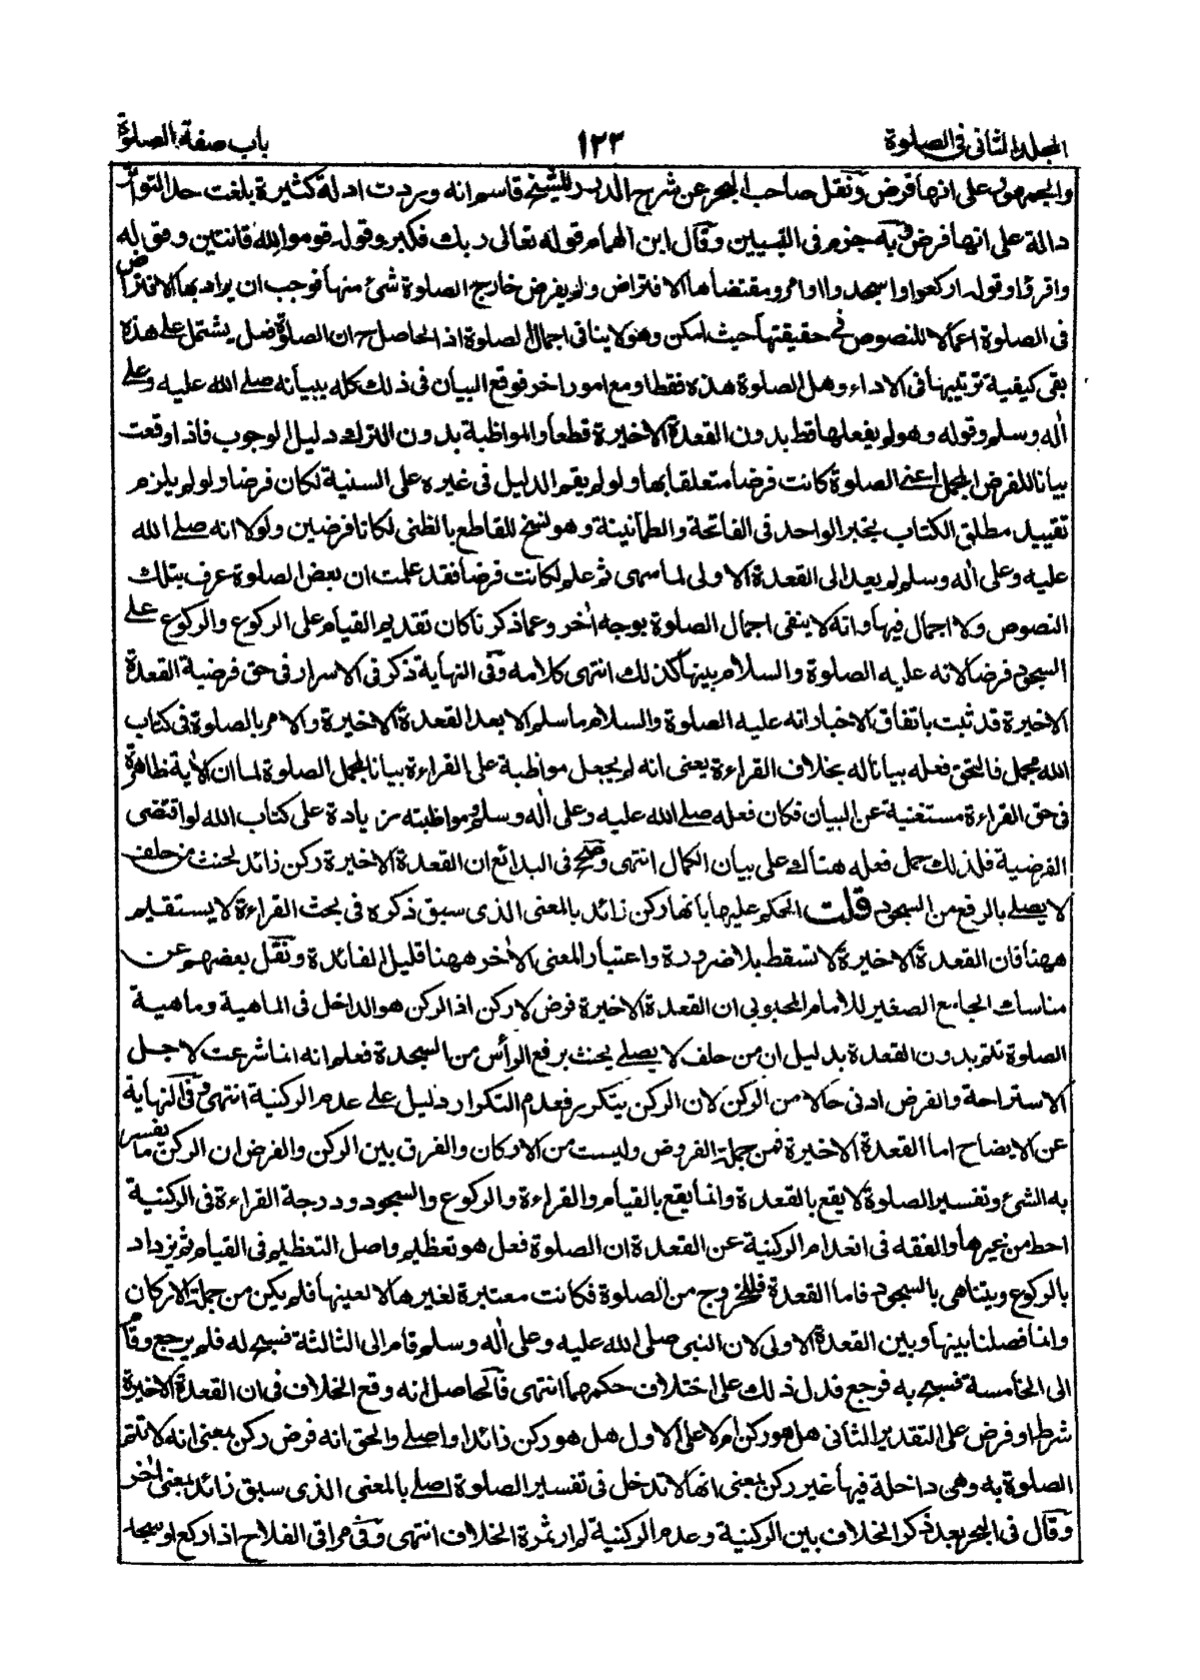 المجلد الثانى فى الصلوة ١٢٣ باب صفة الصلوة
والجمهور على انها فرض ونقل صاحب البحر عن شرح الدرر للشيخ قاسم انه وردت ادلة كثيرة بلغت حد التواتر
دالة على انها فرض وبه جزم فى التبيين وقال ابن الهمام قوله تعالى ربك فكبر وقوله قوموا لله قانتين وقوله
واقرؤا وقوله اركعوا واسجدوا اوامر ومقتضاها الافتراض ولم يفرض خارج الصلوة شئ منها فوجب ان يراد بها الافتراض
فى الصلوة اعمالا للنصوص فى حقيقتها حيث امكن وهو لا ينافى اجمال الصلوة اذ الحاصل ح ان الصلوة فعل يشتمل على هذه
بقى كيفية ترتيبها فى الاداء وهل الصلوة هذه فقط او مع امور اخر فوقع البيان فى ذلك كله ببيانه صلے الله عليه وعلے
اٰله وسلم وقوله وهو لم يفعلها قط بدون القعدة الاخيرة قطعا والمواظبة بدون الترك دليل الوجوب فاذا وقعت
بيانا للفرض المجمل اعنى الصلوة كانت فرضا متعلقا بها ولو لم يقم الدليل فى غيره على السنية لكان فرضا ولو لم يلزم
تقييد مطلق الكتاب بخبر الواحد فى الفاتحة والطمانينة وهو نسخ للقاطع بالظنى لكانا فرضين ولولا انه صلے الله
عليه وعلى اٰله وسلم لم يعد الى القعدة الاولى لما سهى ثم علم لكانت فرضا فقد علمت ان بعض الصلوة عرف بتلك
النصوص ولا اجمال فيها وانه لا ينفى اجمال الصلوة بوجه اٰخر وعما ذكرنا كان تقديم القيام على الركوع والركوع علے
السجود فرضا لانه عليه الصلوة والسلام بينها كذلك انتهى كلامه وفى النهاية ذكر فى الاسرار فى حق فرضية القعدة
الاخيرة قد ثبت باتفاق الاخبار انه عليه الصلوة والسلام ما سلم الا بعد القعدة الاخيرة والامر بالصلوة فى كتاب
الله مجمل فالتحق فعله بيانا له بخلاف القراءة يعنى انه لم يجعل مواظبة على القراءة بيانا لمجمل الصلوة لما ان الاٰية ظاهرة
فى حق القراءة مستغنية عن البيان فكان فعله صلے الله عليه وعلى اٰله وسلم ومواظبته زيادة على كتاب الله لو اقتضى
الفرضية فلذلك حمل فعله هناك على بيان الكمال انتهى وصحح فى البدائع ان القعدة الاخيرة ركن زائد لحنث من حلف
لا يصلے بالرفع من السجود قلت الحكم عليها بانها ركن زائد بالمعنى الذى سبق ذكره فى بحث القراءة لا يستقيم
ههنا فان القعدة الاخيرة لا تسقط بلا ضرورة واعتبار المعنى الاٰخر ههنا قليل الفائدة ونقل بعضهم عن
مناسات الجامع الصغير للامام المحبوبى ان القعدة الاخيرة فرض لا ركن اذ الركن هو الداخل فى الماهية وماهية
الصلوة تتم بدون القعدة بدليل ان من حلف لا يصلے يحنث برفع الرأس من السجدة فعلم انه انما شرعت لاجل
الاستراحة والفرض ادنى حالا من الركن لان الركن يتكرر فعدم التكرار دليل علے عدم الركنية انتهى وفى النهاية
عن الايضاح اما القعدة الاخيرة فمن جملة الفروض وليست من الاركان والفرق بين الركن والفرض ان الركن ما يفسر
به الشئ وتفسير الصلوة لا يقع بالقعدة وانما يقع بالقيام والقراءة والركوع والسجود ودرجة القراءة فى الركنية
احط من غيرها والفقه فى انعدام الركنية عن القعدة ان الصلوة فعل هو تعظيم واصل التعظيم فى القيام ثم يزداد
بالركوع ويتناهى بالسجود فاما القعدة فللخروج من الصلوة فكانت معتبرة لغيرها لا لعينها فلم يكن من جملة الاركان
وانما فصلنا بينها وبين القعدة الاولى لان النبى صلى الله عليه وعلى اٰله وسلم قام الى الثالثة فسبح له فلم يرجع وقام
الى الخامسة فسبح به فرجع فدل ذلك على اختلاف حكمهما انتهى فالحاصل انه وقع الخلاف فى ان القعدة الاخيرة
شرط او فرض على التقدير الثانى هل هو ركن ام لا على الاول هل هو ركن زائد او اصلے والحق انه فرض ركن بمعنى انه لا تتم
الصلوة به وهى داخلة فيها غير ركن بمعنى انها لا تدخل فى تفسير الصلوة اصلے بالمعنى الذى سبق زائد بمعنى اٰخر
وقال فى البحر بعد ذكر الخلاف بين الركنية وعدم الركنية لم ار ثمرة الخلاف انتهى وفى مراقى الفلاح اذا ركع او سجد